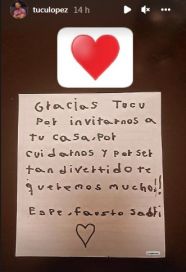 tuculopez 14 h
Gracias Tucu
Por invitarnos a
tu casa, por
cuidarnos y por ser
tan divertido te
queremos mucho!!
Espe, fausto